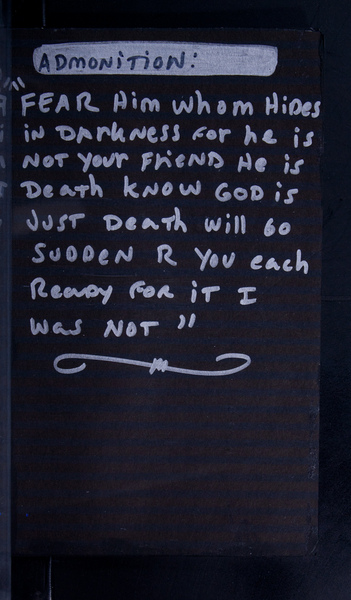 ADMONITION:
"FEAR Him whom HiDES
in DARKNESS FOR he is
NOT YOUR FRiEND He is
Death KNOW GOD is
JUST Death will GO
SUDDEN R You each
Ready FOR iT I
was NOT"